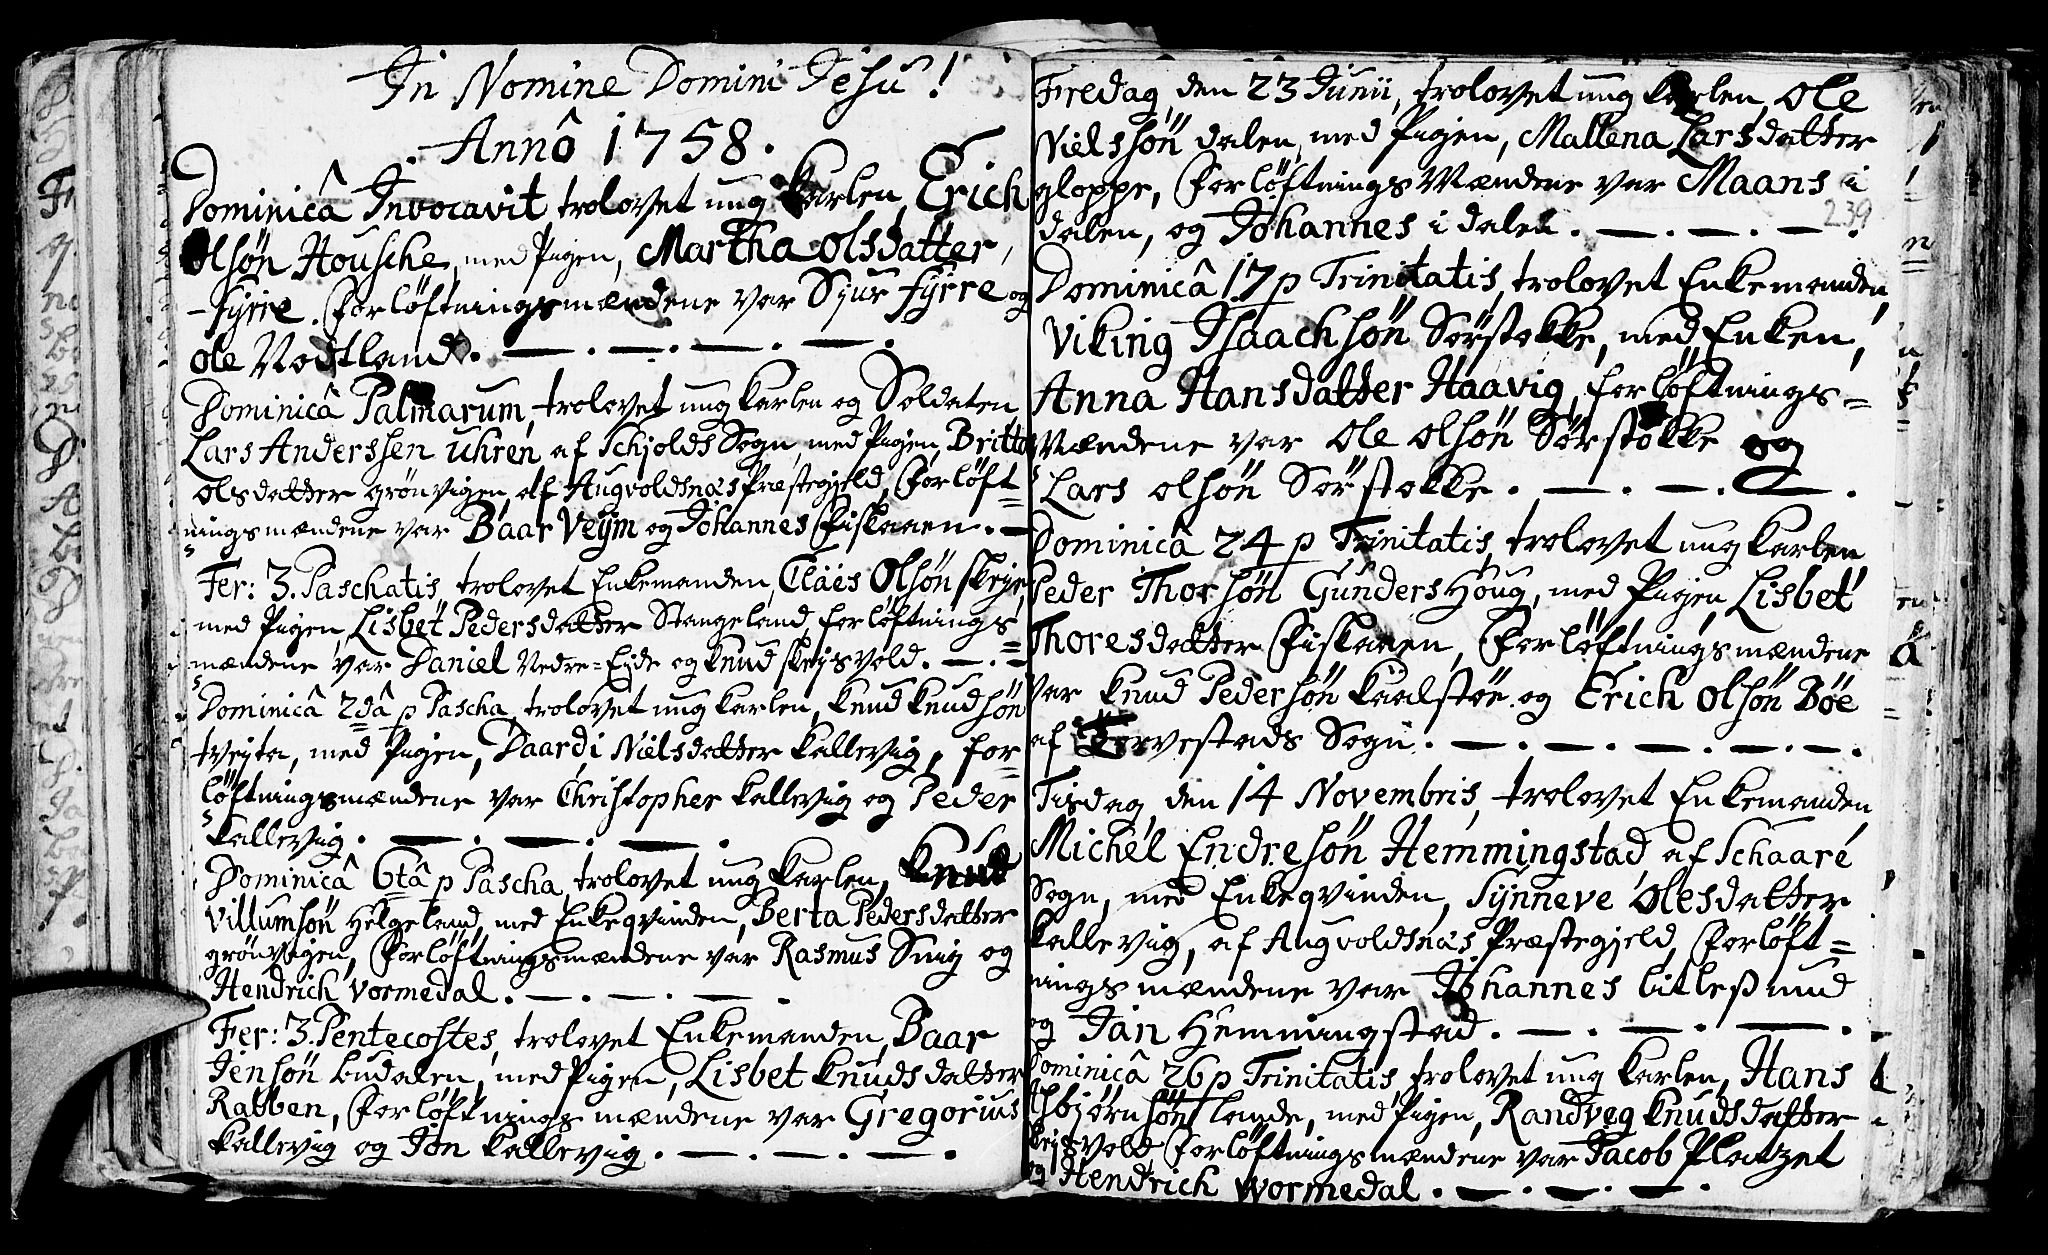 In Nomine Domini Jesu!
Annô 1758.
Dominicâ Invocavit trolovet ung karlen, Erich
Olsøn Housche, med Pigen, Martha olsdatter,
fyrre. Forløftningsmændene var Sjur fyrre og
ole Vodtland.
Dominicâ Palmarum, trolovet ung karlen og Soldaten
Lars Anderssen Uhren af Schjolds Sogn, med Pigen, Britta
olsdatter grönvigen, af Augvoldsnæs Præstegjeld, Forløft=
ningsmændene var Baar Veÿm og Johannes Fiskaaen.
Fer: 3. Paschatis, trolovet Enkemanden, Claës Olsøn skeje,
med Pigen, Lisbet Pedersdatter Stangeland, forløftnings=
mændene var Daniel Nedre=Eide og knud skejsvold.
Dominicâ 2dâ p Pascha, trolovet ung karlen, knud knudsøn
tvejta, med Pigen, Daardi Nielsdatter kallevig, for=
løftningsmændene var Christopher kallevig og Peder
kallevig.
Dominicâ 6tâ p Pascha, trolovet ung karlen, knud
Villumsøn Helgeland, med Enkeqvinden, Berta Pedersdatter
grönvigen, Forløftningsmændene var Rasmus Snig og
Hendrich Vormedal.
Fer: 3. Pentecostes, trolovet Enkemanden, Baar
Jensøn budalen, med Pigen, Lisbet knudsdatter
Rabben, Forløftningsmændene var Gregorius
kallevig og Jon kallevig.
Fredag, den 23 Junii, trolovet ung karlen, Ole
Nielssøn dalen, med Pigen, Mallena Larsdatter
gloppe, Forløftnings Mændene var Maans i
239
dalen, og Johannes i dalen.
Dominicâ 17 p Trinitatis, trolovet Enkemanden,
Viking Isaachsøn Sørstokke, med Enken,
Anna Hansdatter Haavig, forløftnings=
Mændene var Ole olsøn Sørstokke og
Lars olsøn Sørstokke.
Dominicâ 24 p Trinitatis, trolovet ung karlen
Peder Thorsøn Gunders Houg, med Pigen, Lisbet
Thoresdatter Fiskaaen, Forløftningsmændene
var knud Pedersøn kaalstøe og Erich Olsøn Bøe
af Torvestads Sogn.
Tisdag, den 14 Novembris, trolovet Enkemanden
Michel Endresøn Hemmingstad, af Schaare
Sogn, med Enkeqvinden, Synneve Olesdatter
kallevig, af Augvoldsnæs Præstegjeld, Forløft=
nings mændene var Johannes litlesund
og Jan Hemmingstad.
Dominicâ 26 p Trinitatis, trolovet ung karlen, Hans
Asbjørnsøn lande, med Pigen, Randveg knudsdatter
skejsvold Forløftningsmændene var Jacob Platzet
og Hendrich Wormedal.